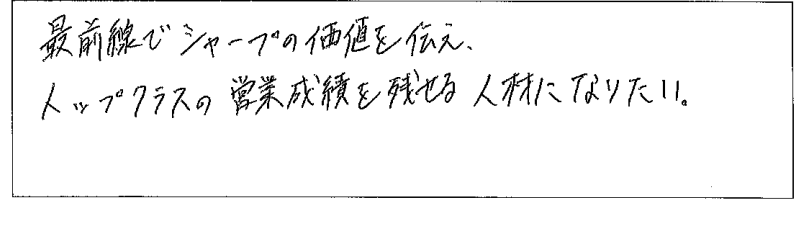 最前線でシャープの価値を伝え、
トップクラスの営業成績を残せる人材になりたい。